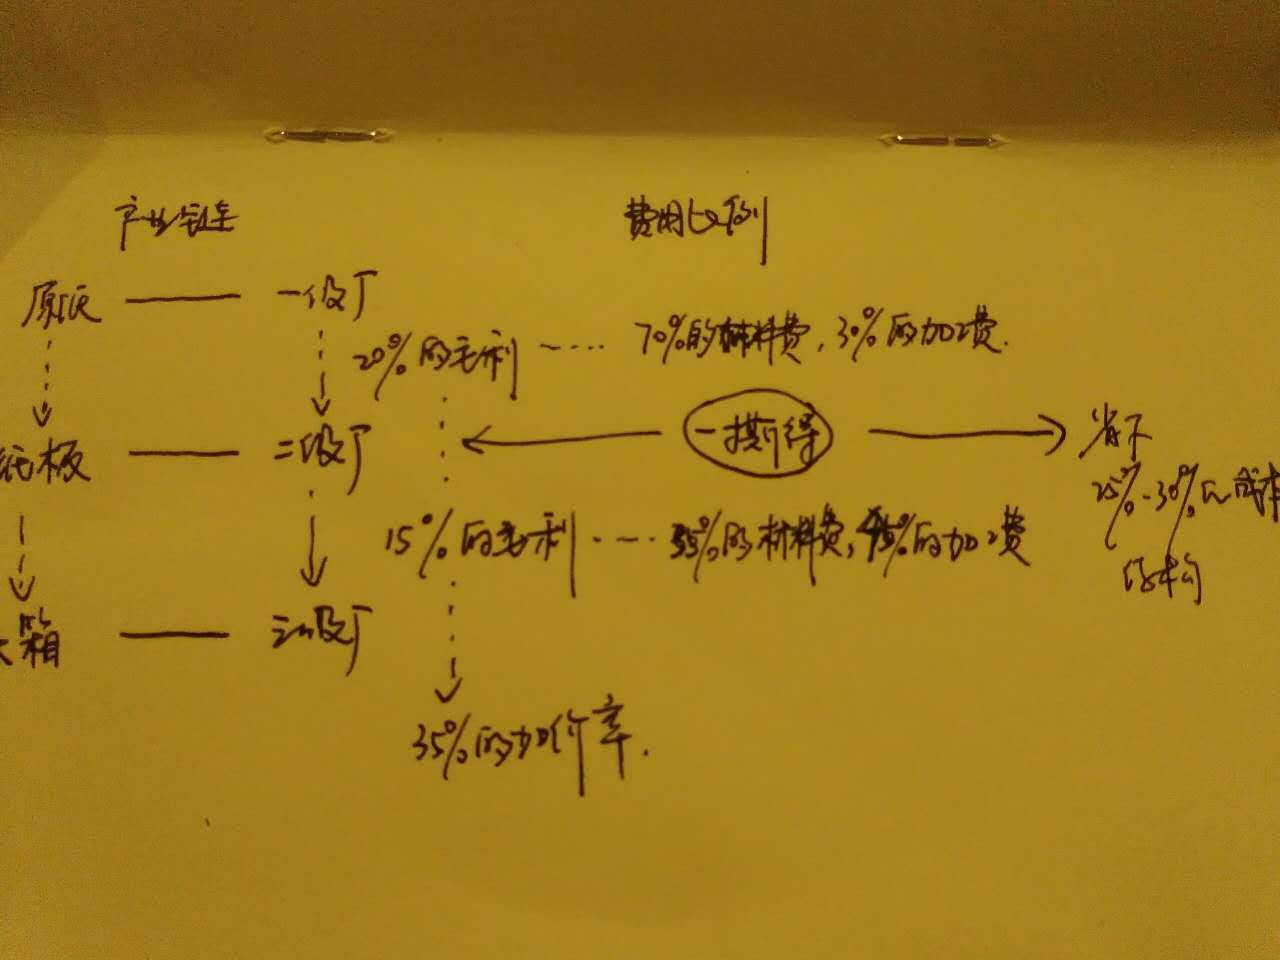 产业链
费用比例
原纸 —— 一级厂
20%的毛利 ···· 70%的材料费，30%的加工费.
一撕得
省下
25%-30%的成本
结构
纸板 —— 二级厂
15%的毛利 ···· 55%的材料费，45%的加工费
箱 —— 三级厂
35%的加价率.